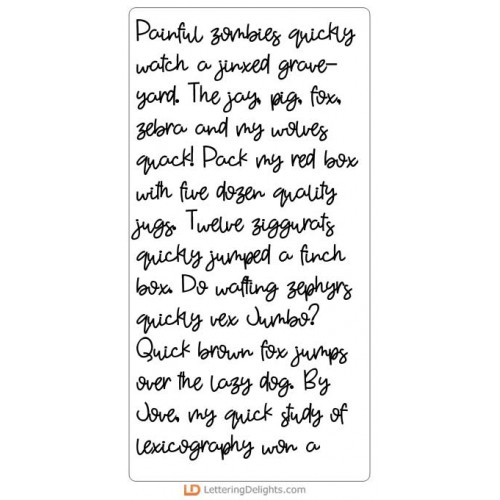 Painful zombies quickly
watch a jinxed grave-
yard. The jay, pig, fox,
zebra and my wolves
quack! Pack my red box
with five dozen quality
jugs. Twelve ziggurats
quickly jumped a finch
box. Do wafting zephyrs
quickly vex Jumbo?
Quick brown fox jumps
over the lazy dog. By
Jove, my quick study of
lexicography won a
LD LetteringDelights.com